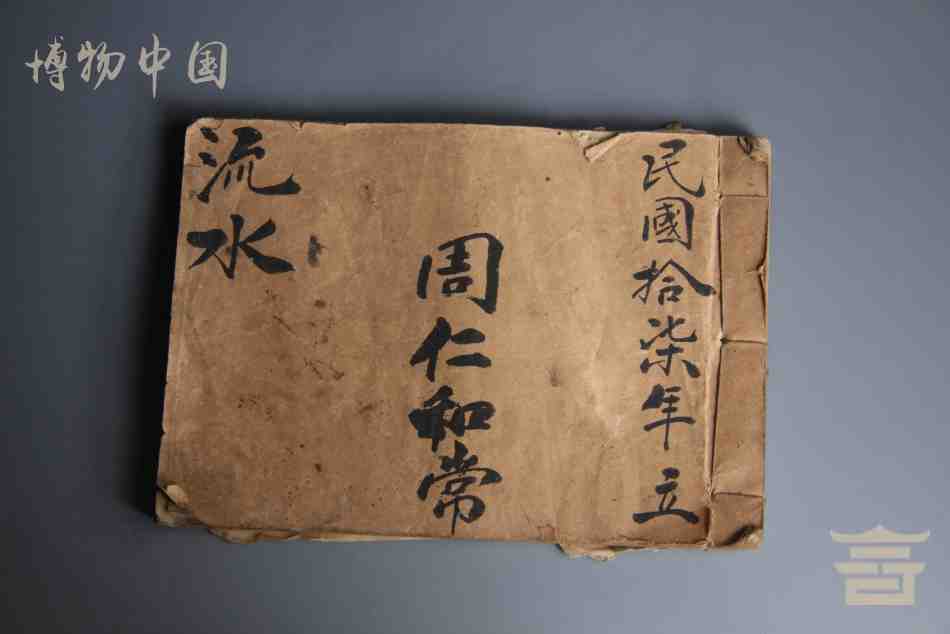 博物中国
民國拾柒年 立
周仁和常
流水